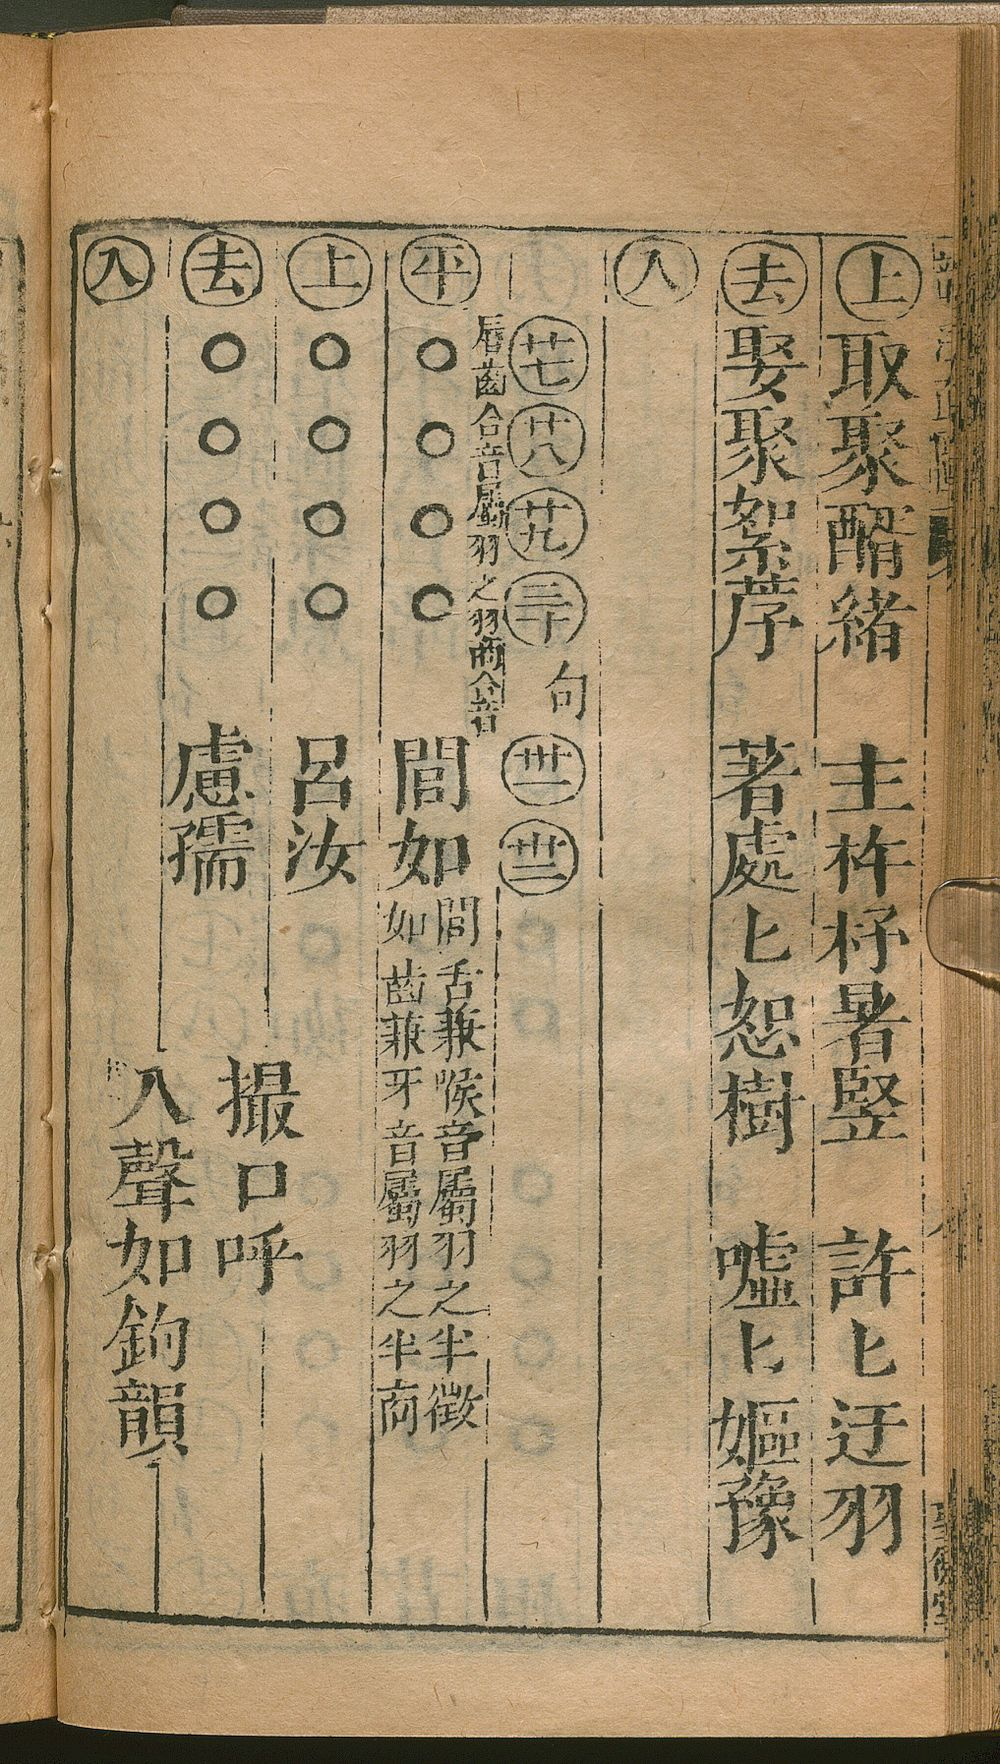 上取聚醑緒　主杵杼暑竪　許匕迂羽
去娶聚絮䓑　著處匕恕樹　噓匕嫗豫
入
廿七 廿八 廿九 三十 句 丗一 丗二
脣齒合音屬羽之羽商合音
平○○○○　閭如
閭舌兼喉音屬羽之半徵
如齒兼牙音屬羽之半商
上○○○○　呂汝
去○○○○　慮孺
撮口呼
入
入聲如鉤韻